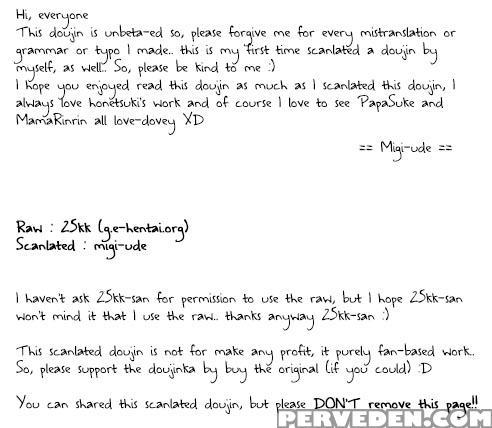 Hi, everyone
This doujin is unbeta-ed so, please forgive me for every mistranslation or
grammar or typo I made.. this is my first time scanlated a doujin by
myself, as well.. So, please be kind to me :)
I hope you enjoyed read this doujin as much as I scanlated this doujin, I
always love honetsuki's work and of course I love to see PapaSuke and
MamaRinrin all love-dovey XD
== Migi-ude ==
Raw : 25kk (g.e-hentai.org)
Scanlated : migi-ude
I haven't ask 25kk-san for permission to use the raw, but I hope 25kk-san
won't mind it that I use the raw.. thanks anyway 25kk-san :)
This scanlated doujin is not for make any profit, it purely fan-based work..
So, please support the doujinka by buy the original (if you could) :D
You can shared this scanlated doujin, but please DON'T remove this page!!
PERVEDEN.COM